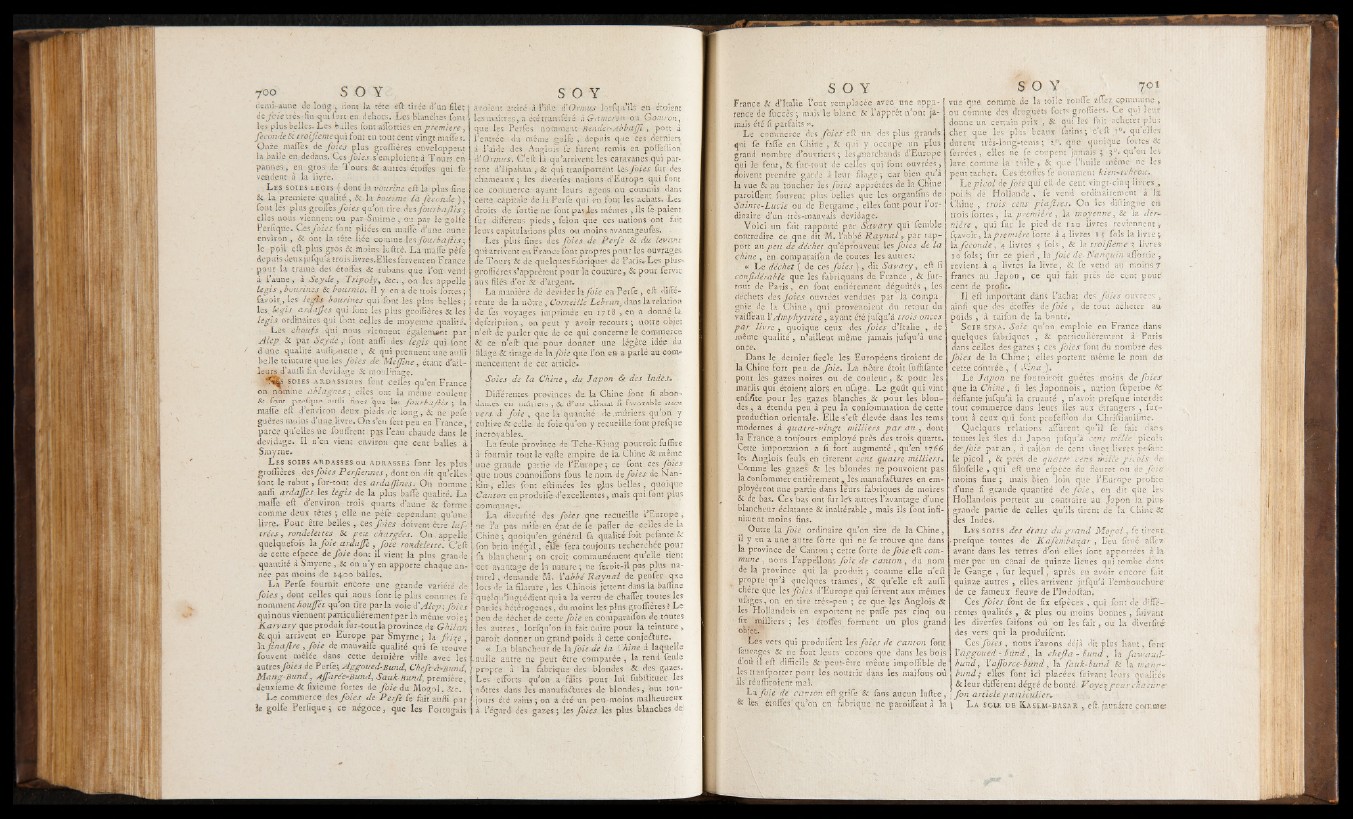 700 S O Y
S O Y
demi-aune de long, dont la tête est tirée d'un filet
de soie très-fin qui sort en dehors. Les blanches sont
les plus belles. Les balles sont assorties en premiere,
seconde & troisieme qui font en tout cent vingt masses.
Onze masses de soies plus grossières enveloppent
la balle en dedans. Ces soies s'emploient à Tours en
pannes, en gros de Tours & autres étoffes qui se
vendent à la livre.
LES SOIES LEGIS (dont la vourine est la plus fine
& la premiere qualité, & la bourme la seconde),
sont les plus grosses soies qu'on tire des sourbastis;
elles nous viennent ou par Smirne, ou par le golfe
Persique. Ces soies sont pliées en masse d'une aune
environ, & ont la tête liée comme les sourbastis;
le poil est plus gros & moins lustré. La masse pèse
depuis deux jusqu'à trois livres. Elles servent en France
pour la trame des étoffes & rubans que l'on vend
à l'aune, à Seyde, Tripoly, &c., on les appelle
legis, bourines & bourmes. Il y en a de trois sortes;
savoir, les legis bourines qui sont les plus belles;
les legis ardasses qui sont les plus grossières & les
legis ordinaires qui sont celles de moyenne qualité.
Les choufs qui nous viennent également par
Alep & par Seyde, sont aussi des legis qui sont
d'une qualité au-dessus, & qui prennent une aussi
belle teinture que les soies de Messine, étant d'ail-
leurs d'aussi fin devidage & moulinage.
SOIES ARDASSINES sont celles qu'en France
on nomme ablaques; elles ont la même couleur
& sont presque aussi fines que les sourbastis; la
masse est d'environ deux pieds de long, & ne pèse
guères moins d'une livre. On s'en sert peu en France,
parce qu'elles ne souffrent pas l'eau chaude dans le
devidage. Il n'en vient environ que cent balles à
Smyrne.
LES SOIES ARDASSES OU ADRASSES sont les plus
grossières des soies Persiennes, dont on dit qu'elles
sont le rebut, sur-tout des ardassines. On nomme
aussi ardasses les legis de la plus basse qualité. La
masse est d'environ trois quarts d'aune & forme
comme deux têtes; elle ne pèse cependant qu'une
livre. Pour être belles, ces soies doivent être lus-
trées, rondelettes & peu chargées. On appelle
quelquefois la soie ardasse, soie rondelette. C'est
de cette espece de soie dont il vient la plus grande
quantité à Smyrne, & on n'y en apporte chaque an-
née pas moins de 2400 balles.
La Perse fournit encore une grande variété de
soies, dont celles qui nous sont le plus connues se
nomment houssei qu'on tire par la voie d'Alep; soies
qui nous viennent particulièrement par la même voie;
Karvary que produit sur-tout la province de Ghilan,
& qui arrivent en Europe par Smyrne; la frise,
la sinastre, soie de mauvaise qualité qui se trouve
souvent mêlée dans cette derniere ville avec les
autres soies de Perse; Aggoued-Bund, Chest-à-Bund,
Mang-Bund, Assarée-Bund, Sauk-Bund, première,
deuxieme & sixieme sortes de soie du Mogol, &c.
Le commerce des soies de Perse se fait aussi par
le golfe Persique; ce négoce, que les Portugais
avoient attiré à l'isle d'Ormus lorsqu'ils en étoient
les maîtres, a été transféré à Gameron ou Gamron,
que les Perses nomment Bender-Abbassi, port à
l'entrée du même golfe, depuis que ces derniers
à l'aide des Anglois se furent remis en possession
d'Ormus. C'est là qu'arrivent les caravanes qui par-
tent d'Ispahan, & qui transportent les soies sur des
chameaux; les diverses nations d'Europe qui font
ce commerce ayant leurs agens ou commis dans
cette capitale de la Perse qui en font les achats. Les
droits de sortie ne sont pas les mêmes, ils se paient
sur différens pieds, selon que ces nations ont fait
leurs capitulations plus ou moins avantageuses.
Les plus fines des soies de Perse & du levant
qui arrivent en France sont propres pour les ouvrages
de Tours & de quelques Fabriques de Paris. Les plus
grossières s'apprêtent pour la couture, & pour servir
aux filés d'or & d'argent.
La manière de dévider la soie en Perse, est diffé-
rente de la nôtre, Corneille Lebrun, dans la relation
de ses voyages imprimée en 1718, en a donné la
description, on peut y avoir recours; notre objet
n'est de parler que de ce qui concerne le commerce
& ce n'est que pour donner une légère idée du
filage & tirage de la soie que l'on en a parlé au com-
mencement de cet article.
Soies de la Chine, du Japon & des Indes.
Différentes provinces de la Chine sont si abon-
dantes en mûriers, & d'un climat si favorable aux
vers à soie, que la quantité de mûriers qu'on y
cultive & celle de soie qu'on y recueille sont presque
incroyables.
La seule province de Tche-Kiang pourroit suffire
à fournir tout le vaste empire de la Chine & même
une grande partie de l'Europe; ce sont ces soies
que nous connoissons sous le nom de soies de Nan-
kin, elles sont estimées les plus belles, quoique
Canton en produise d'excellentes, mais qui sont plus
communes.
La diversité des soies que recueille l'Europe,
ne l'a pas mise en état de se passer de celles de la
Chine; quoiqu'en général sa qualité soit pesante &
son brin inégal, elle sera toujours recherchée pour
sa blancheur; on croit communément qu'elle tient
cet avantage de la nature; ne seroit-il pas plus na-
turel, demande M. l'abbé Raynal de penser que
lors de la filature, les Chinois jettent dans la bassine
quelqu'ingrédient qui a la vertu de chasser toutes les
parties hétérogenes, du moins les plus grossières? Le
peu de déchet de cette soie en comparaison de toutes
les autres, lorsqu'on la fait cuire pour la teinture,
paroît donner un grand poids à cette conjecture.
« La blancheur de la soie de la Chine à laquelle
nulle autre ne peut être comparée, la rend seule
propre à la fabrique des blondes & des gazes.
Les efforts qu'on a faits pour lui substituer les
nôtres dans les manufactures de blondes, ont tou-
jours été vains; on a été un peu moins malheureux
à l'égard des gazes; les soies les plus blanches de
S O Y
S O Y 701
France & d'Italie l'ont remplacée avec une appa-
rence de succès; mais le blanc & l'apprêt n'ont ja-
mais été si parfaits ».
Le commerce des soies est un des plus grands
qui se fasse en Chine, & qui y occupe un plus
grand nombre d'ouvriers; les marchands d'Europe
qui le font, & sur-tout de celles qui sont ouvrées,
doivent prendre garde à leur filage; car bien qu'à
la vue & au toucher les soies apprêtées de la Chine
paroissent souvent plus belles que les organsins de
Sainte-Lucie ou de Bergame, elles sont pour l'or-
dinaire d'un très-mauvais devidage.
Voici un fait rapporté par Savary qui semble
contredire ce que dit M. l'abbé Raynal, par rap-
port au peu de déchet qu'éprouvent les soies de la
chine, en comparaison de toutes les autres.
« Le déchet (de ces soies), dit Savary, est si
considérable que les fabriquans de France, & sur-
tout de Paris, en sont entièrement dégoûtés, les
déchets des soies ouvrées vendues par la compa-
gnie de la Chine, qui provenoient du retour du
vaisseau l'Amphytrite, ayant été jusqu'à trois onces
par livre, quoique ceux des soies d'Italie, de
même qualité, n'aillent même jamais jusqu'à une
once.
Dans le dernier siecle les Européens tiroient de
la Chine fort peu de soie. La nôtre étoit suffisante
pour les gazes noires ou de couleur, & pour les
marlis qui étoient alors en usage. Le goût qui vint
ensuite pour les gazes blanches & pour les blon-
des, a étendu peu à peu la consommation de cette
production orientale. Elle s'est élevée dans les tems
modernes à quatre-vingt milliers par an, dont
la France a toujours employé près des trois quarts.
Cette importation a si fort augmenté, qu'en 1766
les Anglois seuls en tirerent cent quatre milliers.
Comme les gazes & les blondes ne pouvoient pas
la consommer entièrement, les manufactures en em-
ployèrent une partie dans leurs fabriques de moires
& de bas. Ces bas ont sur les autres l'avantage d'une
blancheur éclatante & inaltérable, mais ils sont infi-
niment moins fins.
Outre la soie ordinaire qu'on tire de la Chine,
il y en a une autre sorte qui ne se trouve que dans
la province de Canton; cette sorte de soie est com-
mune, nous l'appellons soie de canton, du nom
de la province qui la produit; comme elle n'est
propre qu'à quelques trames, & qu'elle est aussi
chère que les soies d'Europe qui servent aux mêmes
usages, on en tire très-peu; ce que les Anglois &
les Hollandois en exportent ne passe pas cinq ou
six milliers; les étoffes forment un plus grand
objet.
Les vers qui produisent les soies de canton sont
sauvages & ne font leurs cocons que dans les bois
d'où il est difficile & peut-être même impossible de
les transporter pour les nourrir dans les maisons où
ils réussiroient mal.
La soie de canton est grise & sans aucun lustre,
& les étoffes qu'on en fabrique ne paroissent à la
vue que comme de la toile rousse assez commune,
ou comme des droguets forts grossiers. Ce qui leur
donne un certain prix, & qui les fait acheter plus
cher que les plus beaux satins; c'est 1°. qu'elles
durent très-long-tems; 2°. que quoique fortes &
serrées, elles ne se coupent jamais; 3°. qu'on les
lave comme la toile, & que l'huile même ne les
peut tacher. Ces étoffes se nomment kien-tcheou.
Le picol de soie qui est de cent vingt-cinq livres,
poids de Hollande, se vend ordinairement à la
Chine, trois cens piastres. On les distingue en
trois sortes, la première, la moyenne, & la der-
nière, qui sur le pied de 120 livres reviennent,
sçavoir, la première sorte à 4 livres 15 sols la livre;
la seconde, 4 livres 5 sols, & la troisieme 3 livres
10 sols; sur ce pied, la soie de Nanquin assortie,
revient à 4 livres la livre, & se vend au moins 7
francs au Japon, ce qui fait près de cent pour
cent de profit.
Il est important dans l'achat des soies ouvrées,
ainsi que des étoffes de soie, de tout acheter au
poids, à raison de la bonté.
SOIE SINA. Soie qu'on emploie en France dans
quelques fabriques, & particulierement à Paris
dans celles des gazes; ces soies sont du nombre des
soies de la Chine; elles portent même le nom de
cette contrée, (Sina).
Le Japon ne fourniroit guères moins de soies
que la Chine, si les Japonnois, nation superbe &
défiante jusqu'à la cruauté, n'avoit presque interdit
tout commerce dans leurs isles aux étrangers, sur-
tout à ceux qui font profession du Christianisme.
Quelques relations assurent qu'il se fait dans
toutes les isles du Japon jusqu'à cent mille picols
de soie par an, à raison de cent vingt livres pesant
le picol, & près de quatre cens mille picols de
filoselle, qui est une espèce de fleuret ou de soie
moins fine; mais bien loin que l'Europe profite
d'une si grande quantité de soie, on dit que les
Hollandois portent au contraire au Japon la plus
grande partie de celles qu'ils tirent de la Chine &
des Indes.
LES SOIES des états du grand Mogol, se tirent
presque toutes de Kasembazar, lieu situé assez
avant dans les terres d'où elles sont apportées à la
mer par un canal de quinze lieues qui tombe dans
le Gange, sur lequel, après en avoir encore fait
quinze autres, elles arrivent jusqu'à l'embouchure
de ce fameux fleuve de l'Indostan.
Ces soies sont de six espèces, qui sont de diffé-
rentes qualités, & plus ou moins bonnes, suivant
les diverses saisons où on les fait, ou la diversité
des vers qui la produisent.
Ces soies, nous l'avons déjà dit plus haut, sont
l'Aggoued-Bund, la chessa-bund, la
bund, l'assorée-bund, la sauk-bund & la
bund; elles sont ici placées suivant leurs qualités
& leur différent dégré de bonté. Voyez pour chacune
son article particulier.
LA SOIE DE KASEM-BASAR, est jaunâtre comme